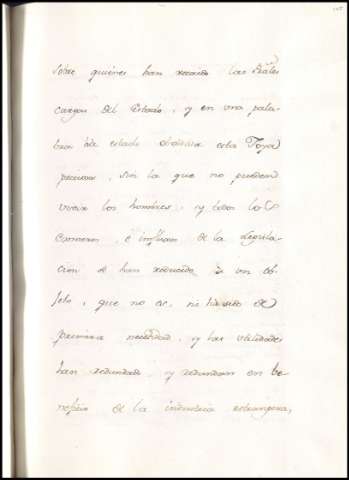 sobre quienes han recaido las Rales
cargas del Estado, y en una pala-
bra de estado esta Joya
preciosa, sin la que no pueden
vivir los hombres, y todo lo
Comercio, é influxo de la Legisla-
cion se han reducido a un ob-
jeto, que no es, ni ha sido de
primera necesidad, y las utilidades
han redundado, y redundan en be-
neficio de la industria estrangera,